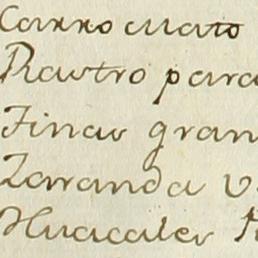 Carro mato
Rastro para
Finas gran
Zaranda v
Huacales